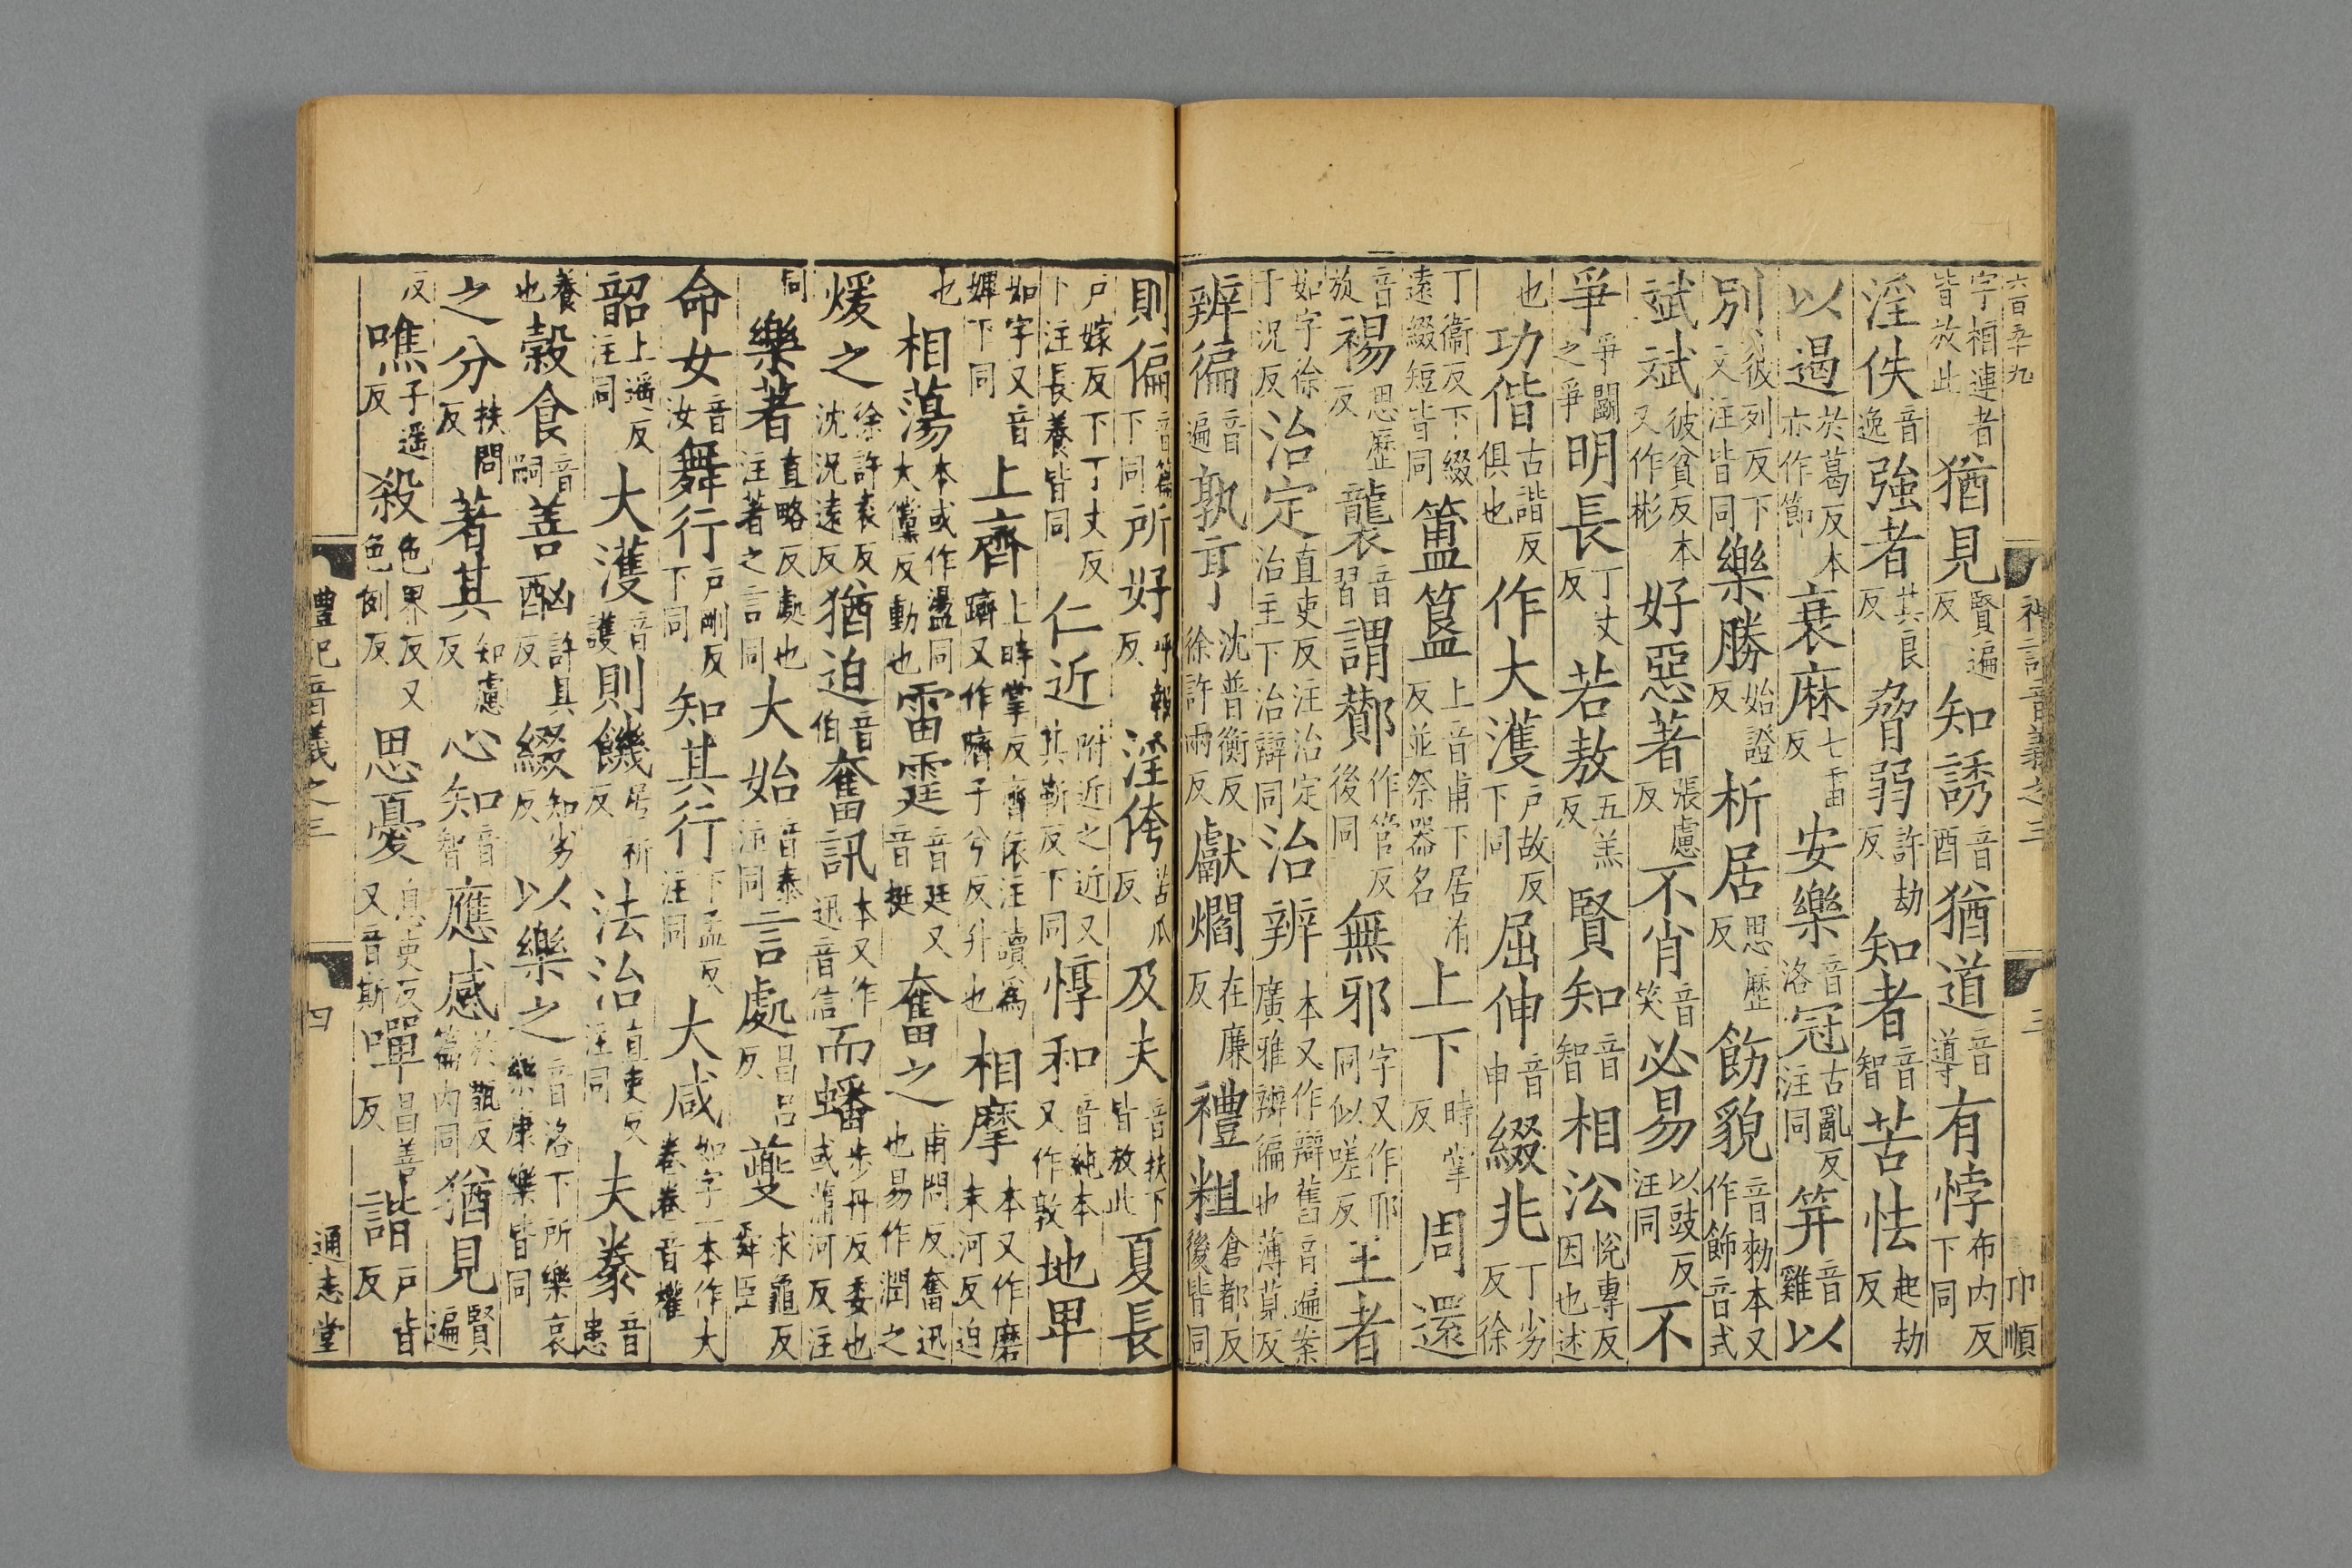 六百五十九
禮記音義之三
三
卬順
字相連者皆放此 猶見賢遍反 知誘音酉 猶道音導 有悖布内反下同
淫佚音逸 強者其良反 脅弱許劫反 知者音智 苦怯起劫反
以遏於葛反本亦作節 衰麻七雷反 安樂音洛 冠古亂反注同 筓音雞 以
別彼列反下文注皆同 樂勝始證反 析居思歷反 飭貌音勑本又作飾音式
斌斌彼貧反本又作彬 好惡著張慮反 不肖音笑 必易以豉反注同 不
爭爭鬭之爭 明長丁丈反 若敖五羔反 賢知音智 相沿悅專反因也述
也 功偕古諧反俱也 作大濩戶故反下同 屈伸音申 綴兆丁劣反徐
丁衞反下綴遠綴短皆同 簠簋上音甫下居洧反並祭器名 上下時掌反 周還
音旋 裼思歷反 襲音習 謂酇作管反後同 無邪字又作耶同似嗟反 王者
如字徐于況反 治定直吏反注治定治主下治辯同 治辨本又作辯舊音遍案廣雅辨徧也薄莧反
辨徧音遍 孰亨沈普衡反徐許兩反 獻爓在廉反 禮粗倉都反後皆同
則偏音篇下同 所好呼報反 淫侉苦瓜反 及夫音扶下皆放此 夏長
戶嫁反下丁丈反下注長養皆同 仁近附近之近又其靳反下同 惇和音純本又作敦 地卑
如字又音婢下同 上齊上時掌反齊依注讀爲躋又作隮子兮反升也 相摩本又作磨末河反迫
也 相蕩本或作盪同大黨反動也 雷霆音廷又音挺 奮之甫問反奮迅也易作潤之
煖之徐許袁反沈況遠反 猶迫音伯 奮訊本又作迅音信 而蟠步丹反委也或蒲河反注
同 樂著直略反處也注著之言同 大始音泰注同 言處昌呂反 夔求龜反舜臣
命女音汝 舞行戶剛反下同 知其行下孟反注同 大咸如字一本作大卷卷音權
韶上遥反注同 大濩音護 則饑居祈反 法治直吏反注同 夫豢音患
養也 穀食音嗣 善酗許具反 綴知劣反 以樂之音洛下所樂哀樂康樂皆同
之分扶問反 著其知慮反 心知音智 應感於甑反篇内同 猶見賢遍
反 噍子遥反 殺色界反又色例反 思憂息吏反又音斯 嘽昌善反 諧戶皆反
禮記音義之三
四
通志堂